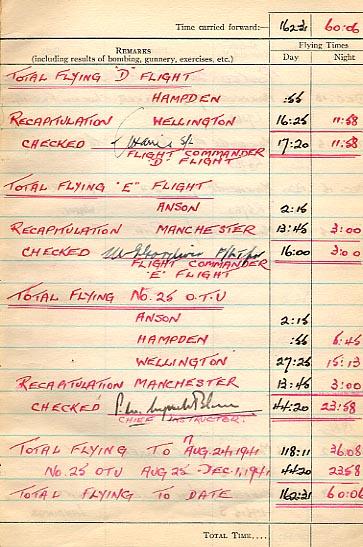 Time carried forward:— 162:31 60:06
REMARKS
(including results of bombing, gunnery, exercises, etc.)
Flying Times
Day Night
TOTAL FLYING "D" FLIGHT
HAMPDEN :55
RECAPITULATION WELLINGTON 16:25 11:58
CHECKED 17:20 11:58
FLIGHT COMMANDER
"D" FLIGHT
TOTAL FLYING "E" FLIGHT
ANSON 2:15
RECAPITULATION MANCHESTER 13:45 3:00
CHECKED 16:00 3:00
FLIGHT COMMANDER
"E" FLIGHT
TOTAL FLYING No. 25 O.T.U
ANSON 2:15
HAMPDEN :55 6:45
WELLINGTON 27:25 15:13
RECAPITULATION MANCHESTER 13:45 3:00
CHECKED 44:20 23:58
CHIEF INSTRUCTOR.
TOTAL FLYING TO AUG. 24, 1941 118:11 36:08
No. 25 OTU AUG 25 - DEC. 1, 1941 44:20 23:58
TOTAL FLYING TO DATE 162:31 60:06
TOTAL TIME....